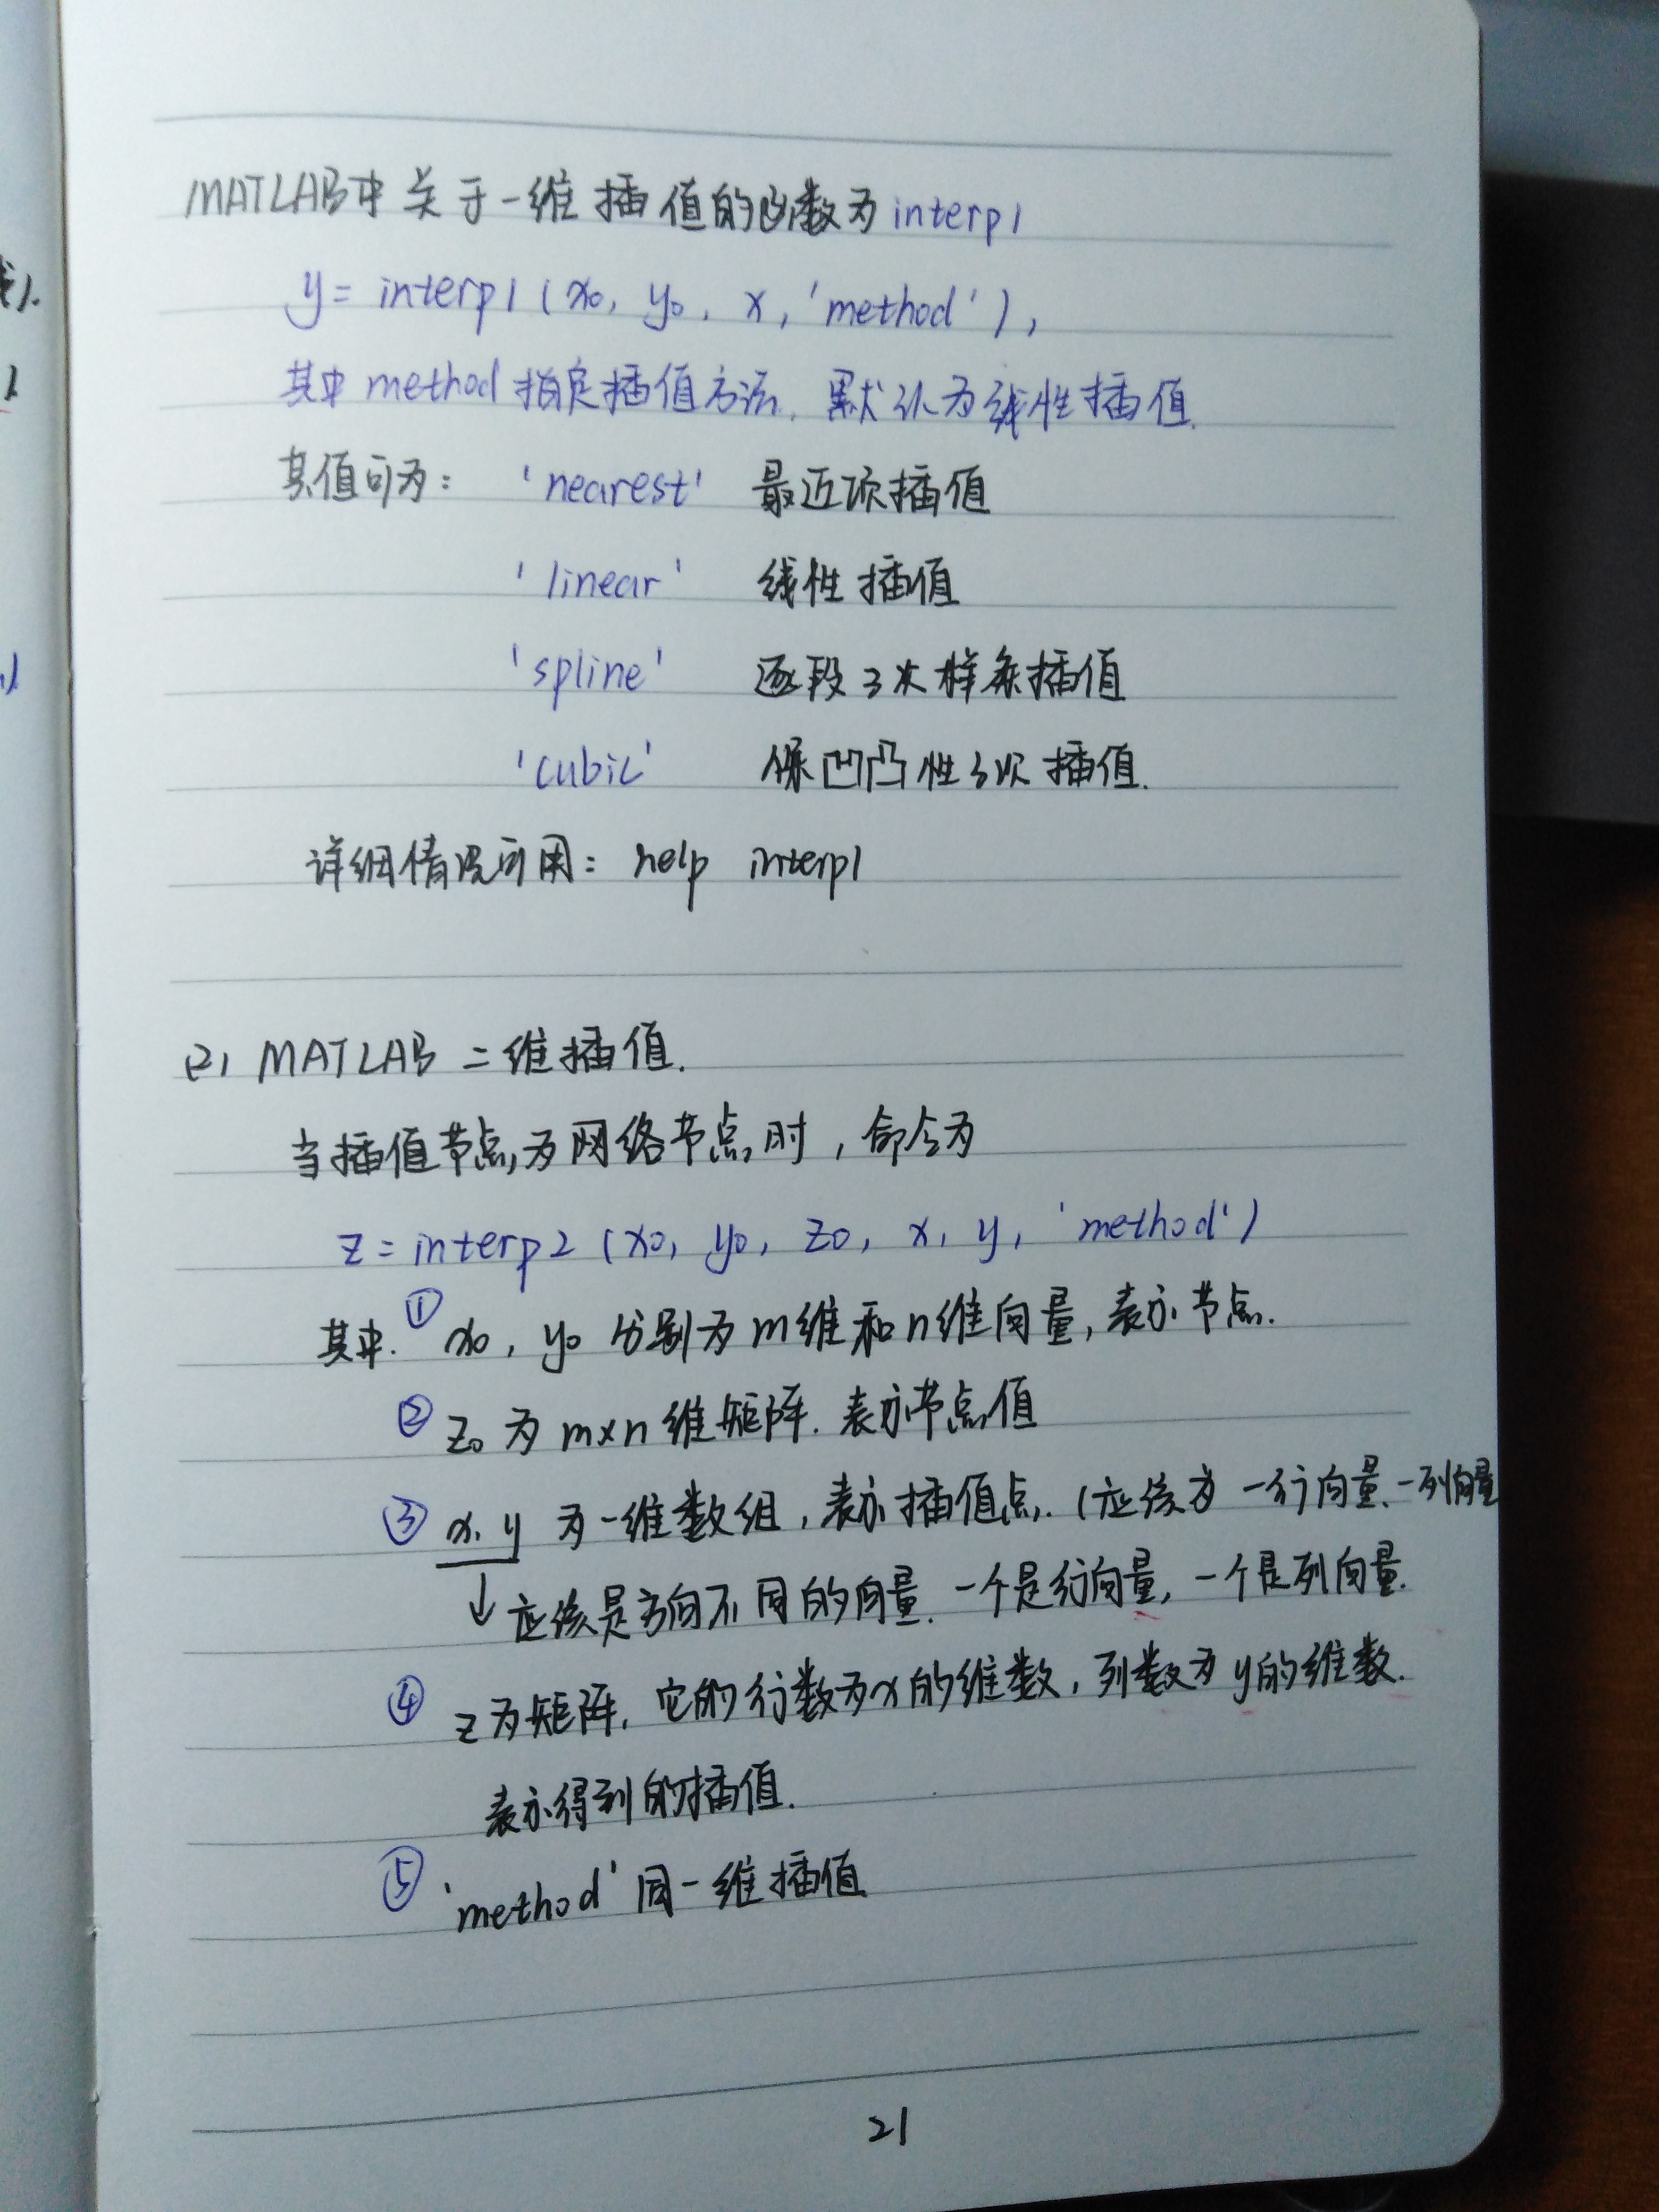 MATLAB中关于一维插值的函数为interp1
y = interp1 (x0, y0, x, 'method'),
其中method指定插值方法. 默认为线性插值.
其值可为: 'nearest' 最近项插值
'linear' 线性插值
'spline' 逐段3次样条插值
'cubic' 保凹凸性3次插值.
详细情况可用: help interp1
(2) MATLAB 二维插值.
当插值节点为网络节点时, 命令为
z = interp2 (x0, y0, z0, x, y, 'method')
其中. ① x0, y0 分别为m维和n维向量, 表示节点.
② z0 为 m×n 维矩阵. 表示节点值
③ x. y 为一维数组, 表示插值点. (应该为一行向量、一列向量
↓ 应该是方向不同的向量. 一个是行向量, 一个是列向量.
④ z为矩阵, 它的行数为x的维数, 列数为y的维数.
表示得到的插值.
⑤ 'method' 同一维插值
21